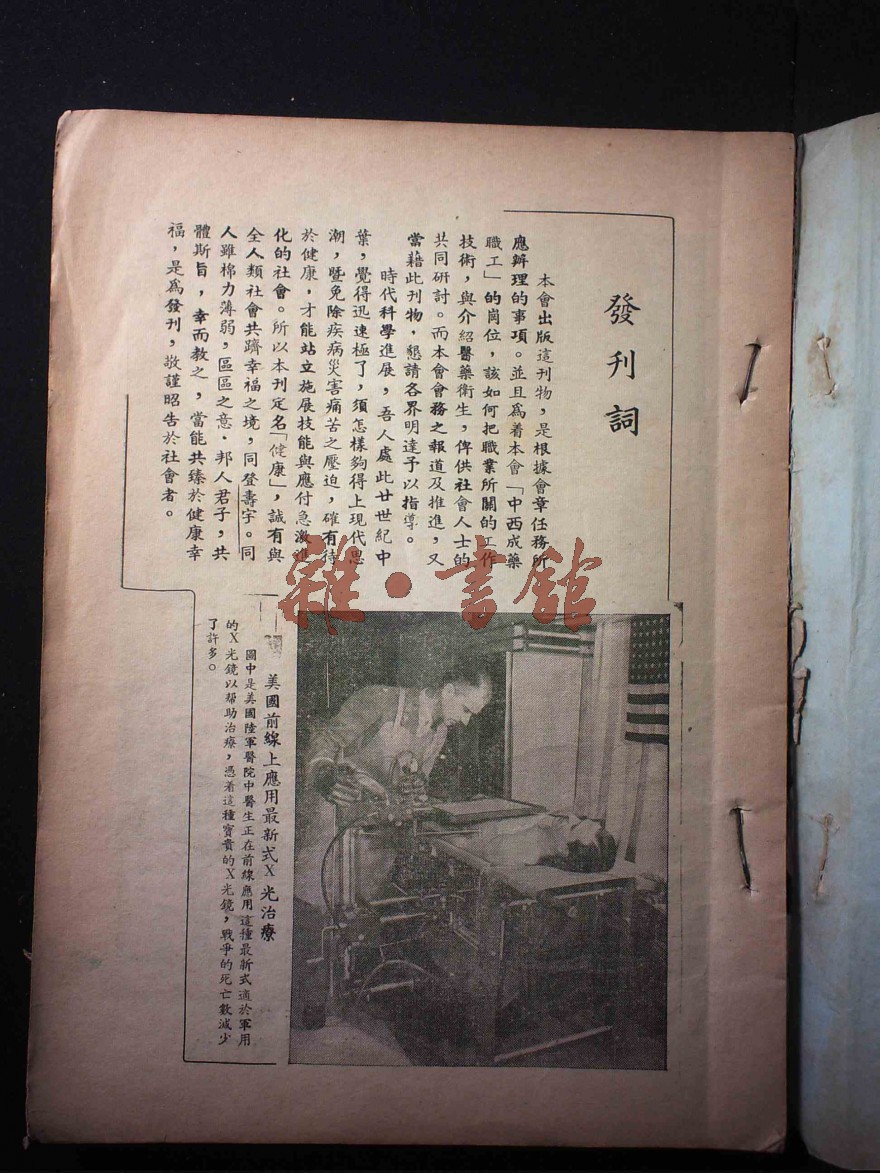 發刊詞
本會出版這刊物，是根據會章任務所
應辦理的事項。並且爲着本會「中西成藥
職工」的崗位，該如何把職業所關的工作
技術，與介紹醫藥衛生，俾供社會人士的
共同研討。而本會會務之報道及推進，又
當藉此刊物，懇請各界明達予以指導。
時代科學進展，吾人處此廿世紀中
葉，覺得迅速極了，須怎樣夠得上現代思
潮，暨免除疾病災害痛苦之壓迫，確有待
於健康，才能站立施展技能與應付急激進
化的社會。所以本刊定名「健康」，誠有與
全人類社會共躋幸福之境，同登壽宇。同
人雖棉力薄弱，區區之意，邦人君子，共
體斯旨，幸而教之，當能共臻於健康幸
福，是爲發刊，敬謹昭告於社會者。
雜·書館
美國前線上應用最新式X光治療
圖中是美國陸軍醫院中醫生正在前線應用這種最新式適於軍用
的X光鏡以帮助治療，憑着這種寶貴的X光鏡，戰爭的死亡數減少
了許多。